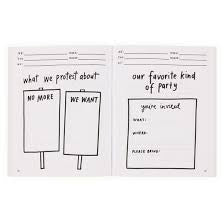 what we protest about
NO MORE
WE WANT
our favorite kind
of party
you're invited
WHAT:
WHERE:
PLEASE BRING: